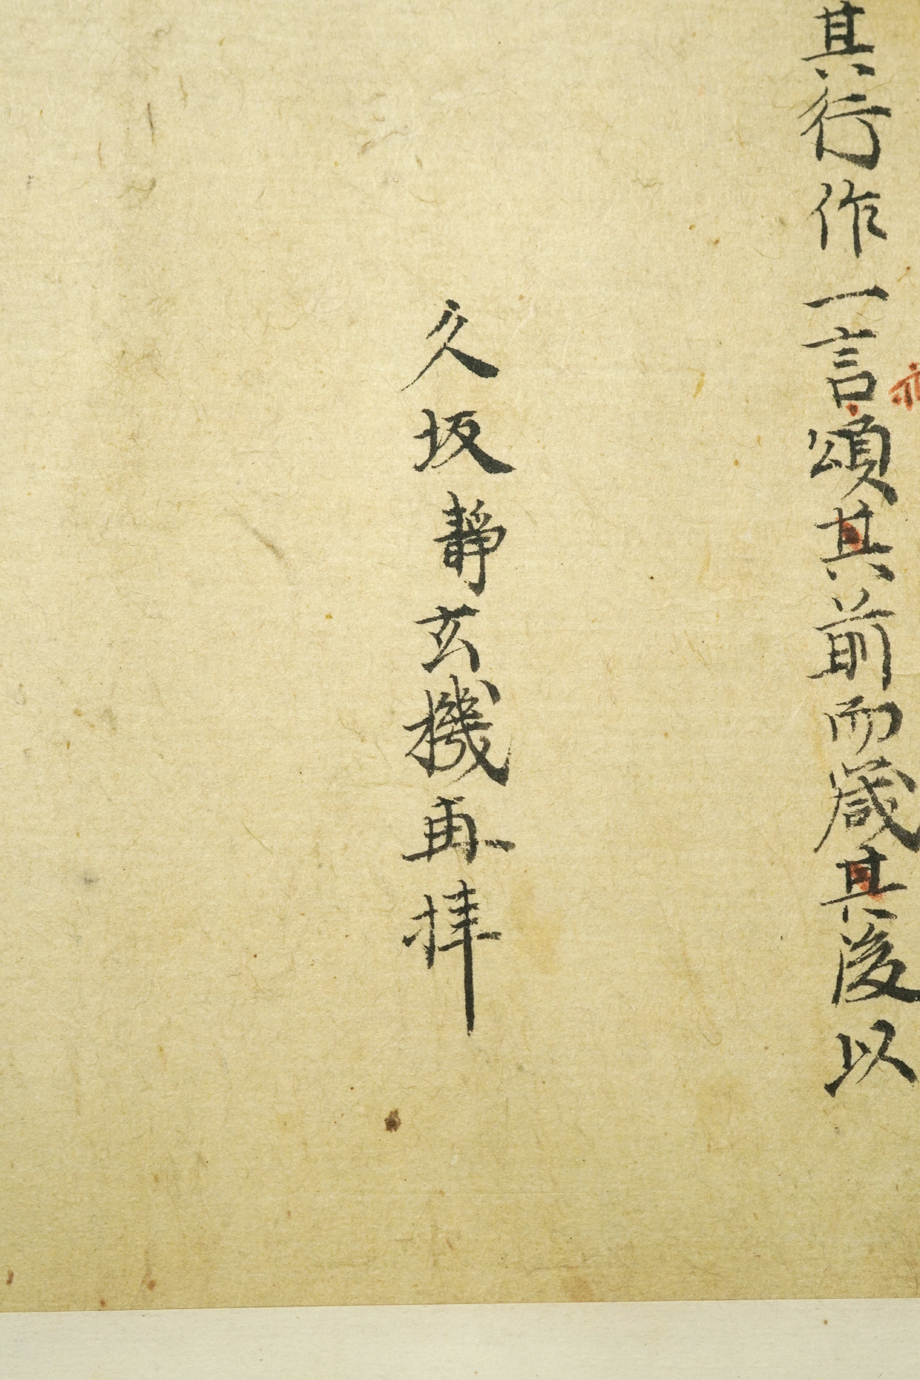 其行作一言頌其前而箴其後以
久坂靜玄機再拝